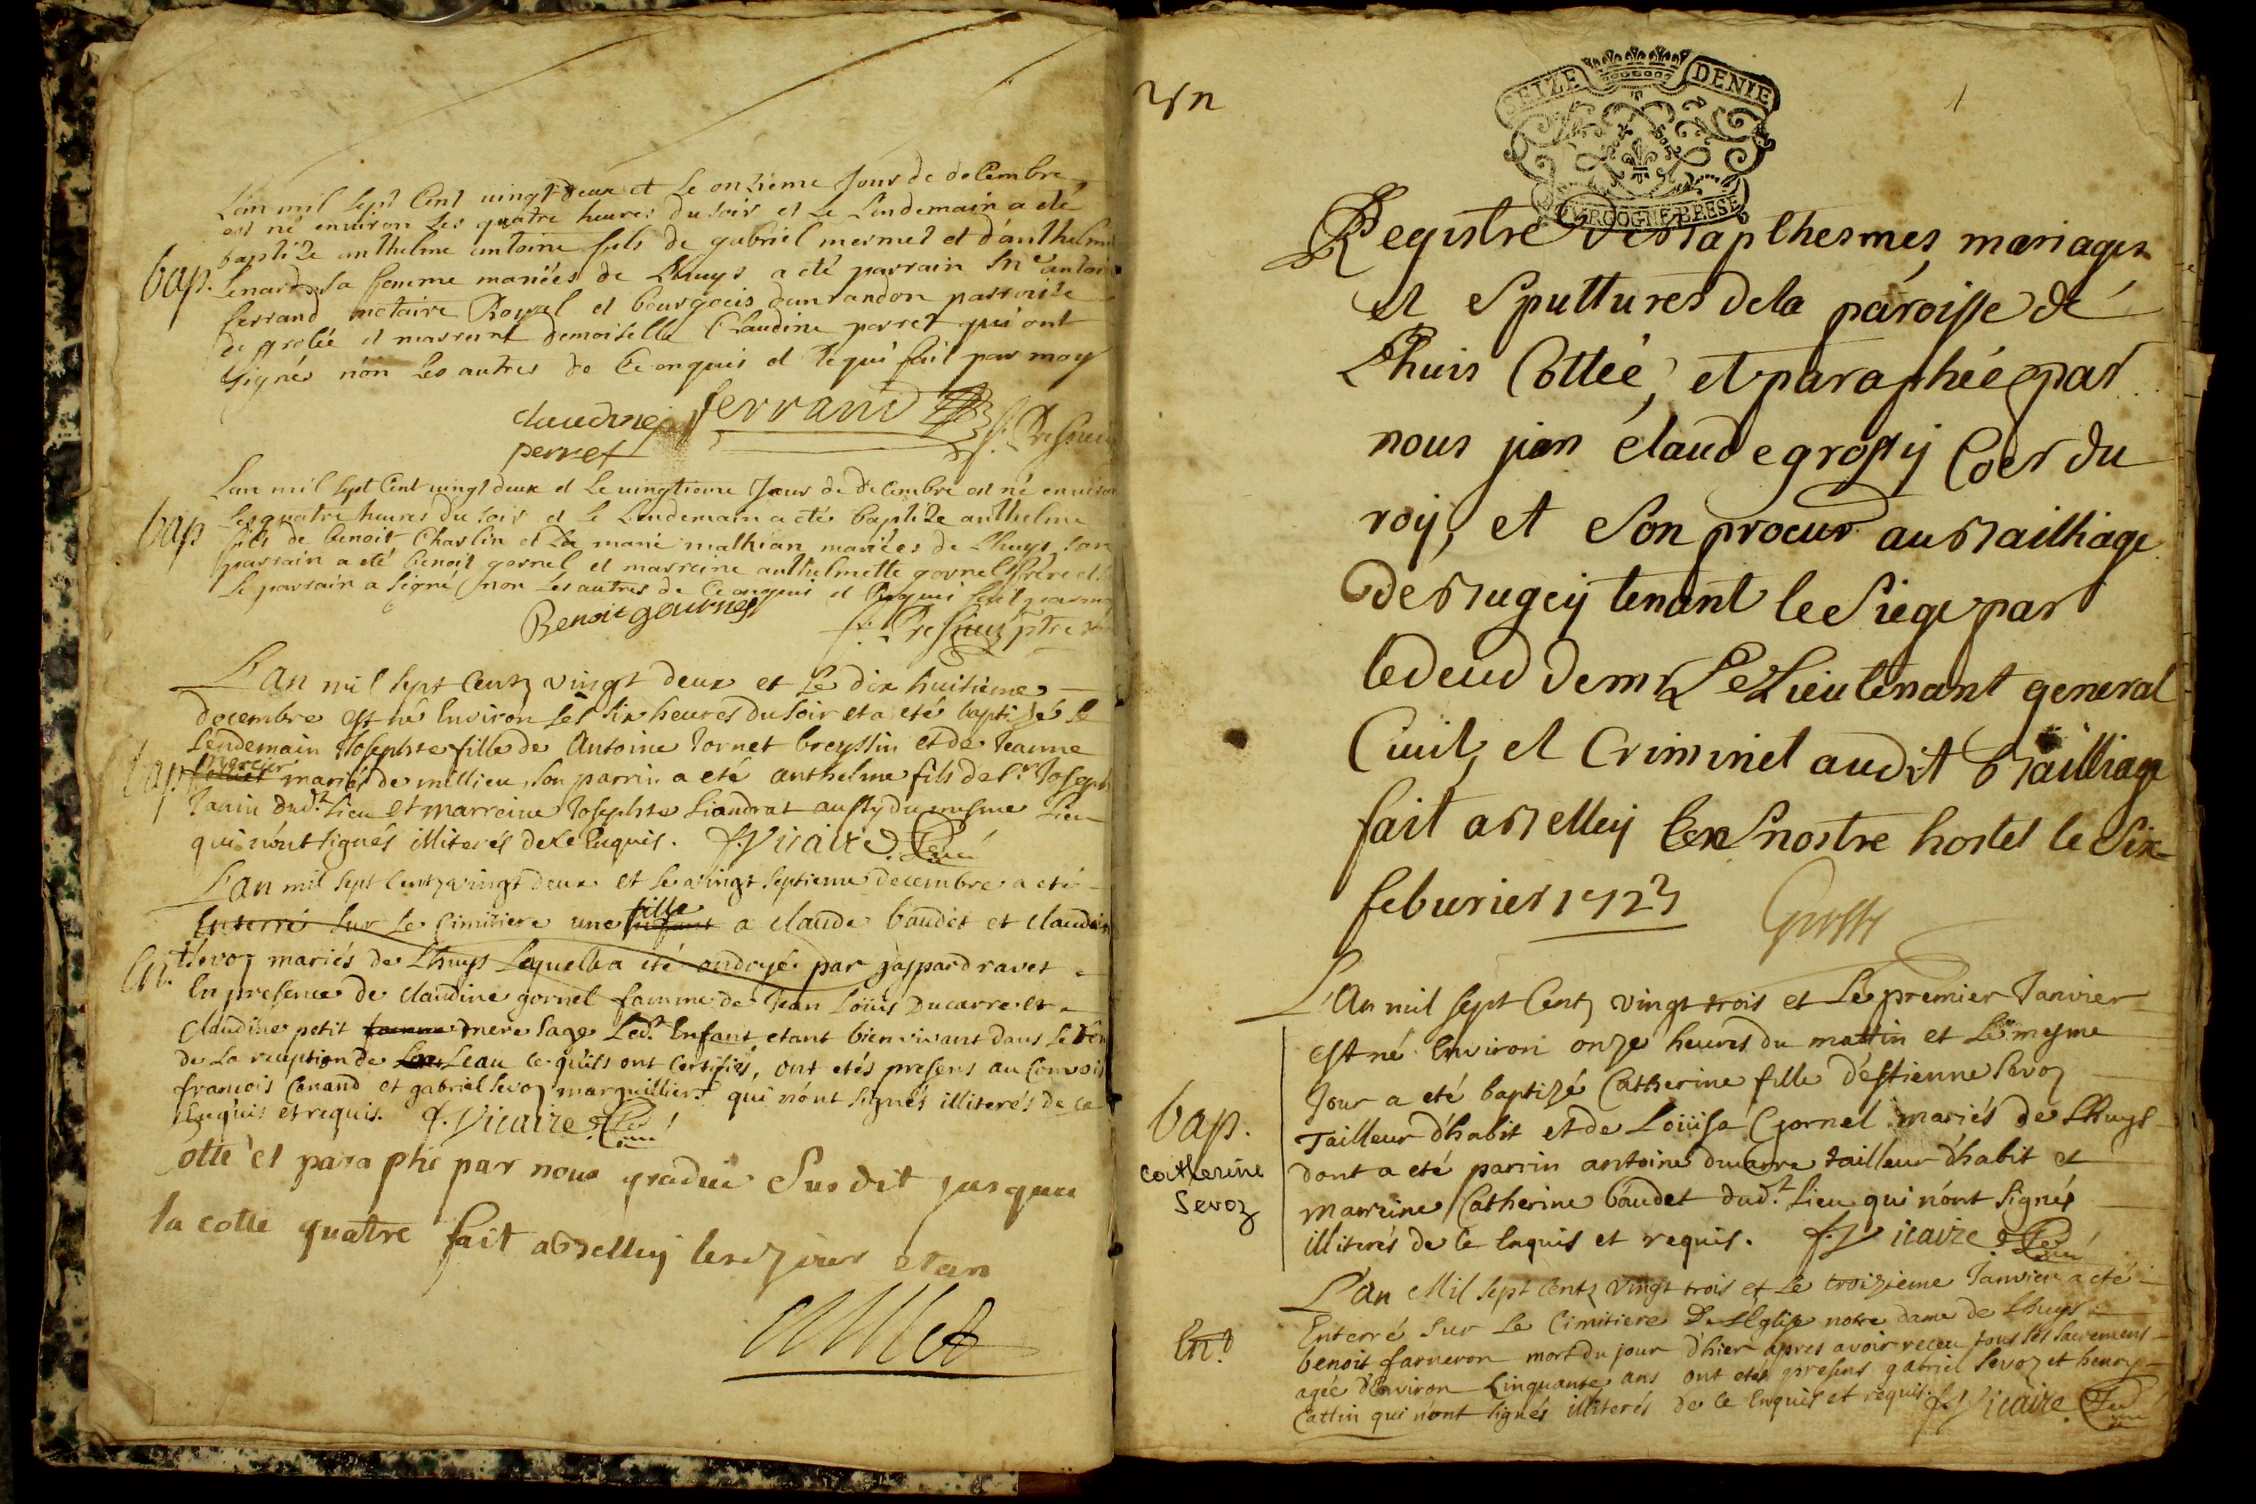 L'an mil sept Cent vingt-deux et le onzieme Jour de decembre
est né environ les quatre heures du soir et le Lendemain a eté
baptizé anthelme antoine fils de gabriel mermet et d'anthelme
bap. Lenard sa femme mariées de Lhuys a eté parrain Sr antoine
ferrand notaire Royal et bourgeois parroisse
de grolée et marreine demoiselle Claudine perret qui ont
Signés non les autres de ce enquis et requis fait par moy
claudine ferrand
perret
L'an mil sept Cent vingt deux et le vingtieme Jour de decembre est né environ
bap les quatre heures du soir et le Lendemain a eté baptizé anthelme
fils de benoit Charlin et de marie mathian mariées de Lhuys son
parrain a eté benoit gornel et marreine anthelmette gornel frere et
le parrain a signé non les autres de ce enquis et requis fait par moy
Benoit gournel
L'an mil sept Centz vingt deux et le dix huitieme
decembre est né Environ les six heures du soir et a eté baptizée le
Lendemain Josephte fille de Antoine Jornet breyssin et de Jeanne
mercier
bap mariés de millieu, son parrin a eté anthelme fils de sr Joseph
Janin dudt Lieu et marreine Josephte Liandrat aussy du mesme Lieu
qui n'ont signés illiterés de ce Enquis. f. Vicaire
L'an mil sept Centz vingt deux et le vingt septieme decembre a eté
fille
Enterré sur le Cimitiere une enfant a claude baudet et claudine
En. Sevoz mariés de Lhuys Laquelle a eté ondoyé par gaspard ravet
En presence de claudine gornel famme de Jean Loüis Ducarre et
Claudine petit famme mere sage Ledt Enfant etant bien vivant dans le tem
de La reception de Leau ce quils ont Certifiés, ont etés presens au Convois
francois Canand et gabriel Sevoz marguilliers qui n'ont signés illiterés de ce
Enquis et requis. f. Vicaire
Cotté et paraphé par nous gradué Susdit jusques
la cotte quatre fait a Belley lesdz jour et an
un
1
SEIZE DENIE
BOVRGOGNE BRESE
Registre des Bapthesmes, mariages
et Sputtures de la paroisse de
Lhuis Cottée, et paraphée par
nous jean claude grossy Coer du
roy, et Son procur au Bailliage
de Bugey tenant le Siege par
le deced de mr Le Lieutenant general
Civil, et Criminel audit Bailliage
fait a Belley En nostre hostel le Six
feburier 1723 Grossy
L'An mil sept Centz vingt trois et le premier Janvier
est né Environ onze heures du mattin et le mesme
Jour a eté baptizé Catherine fille d'Estienne Sevoz
bap. Tailleur d'habit et de Loüise Gornel mariés de Lhuys
Catherine dont a eté parrin antoine ducarre tailleur d'habit et
Sevoz marreine Catherine baudet dudt Lieu qui n'ont signés
illiterés de ce Enquis et requis. f. Vicaire
L'an Mil sept Centz vingt trois et le troizieme Janvier a eté
Ent Enterré sur le Cimitiere De L'Eglise notre dame de Lhuys
benoit farneron mort du jour d'hier apres avoir receu tous les sacremens
agée d'Environ Cinquante ans ont etés presens gabriel Sevoz et henry
Catlin qui n'ont signés illiterés de ce Enquis et requis. f. Vicaire